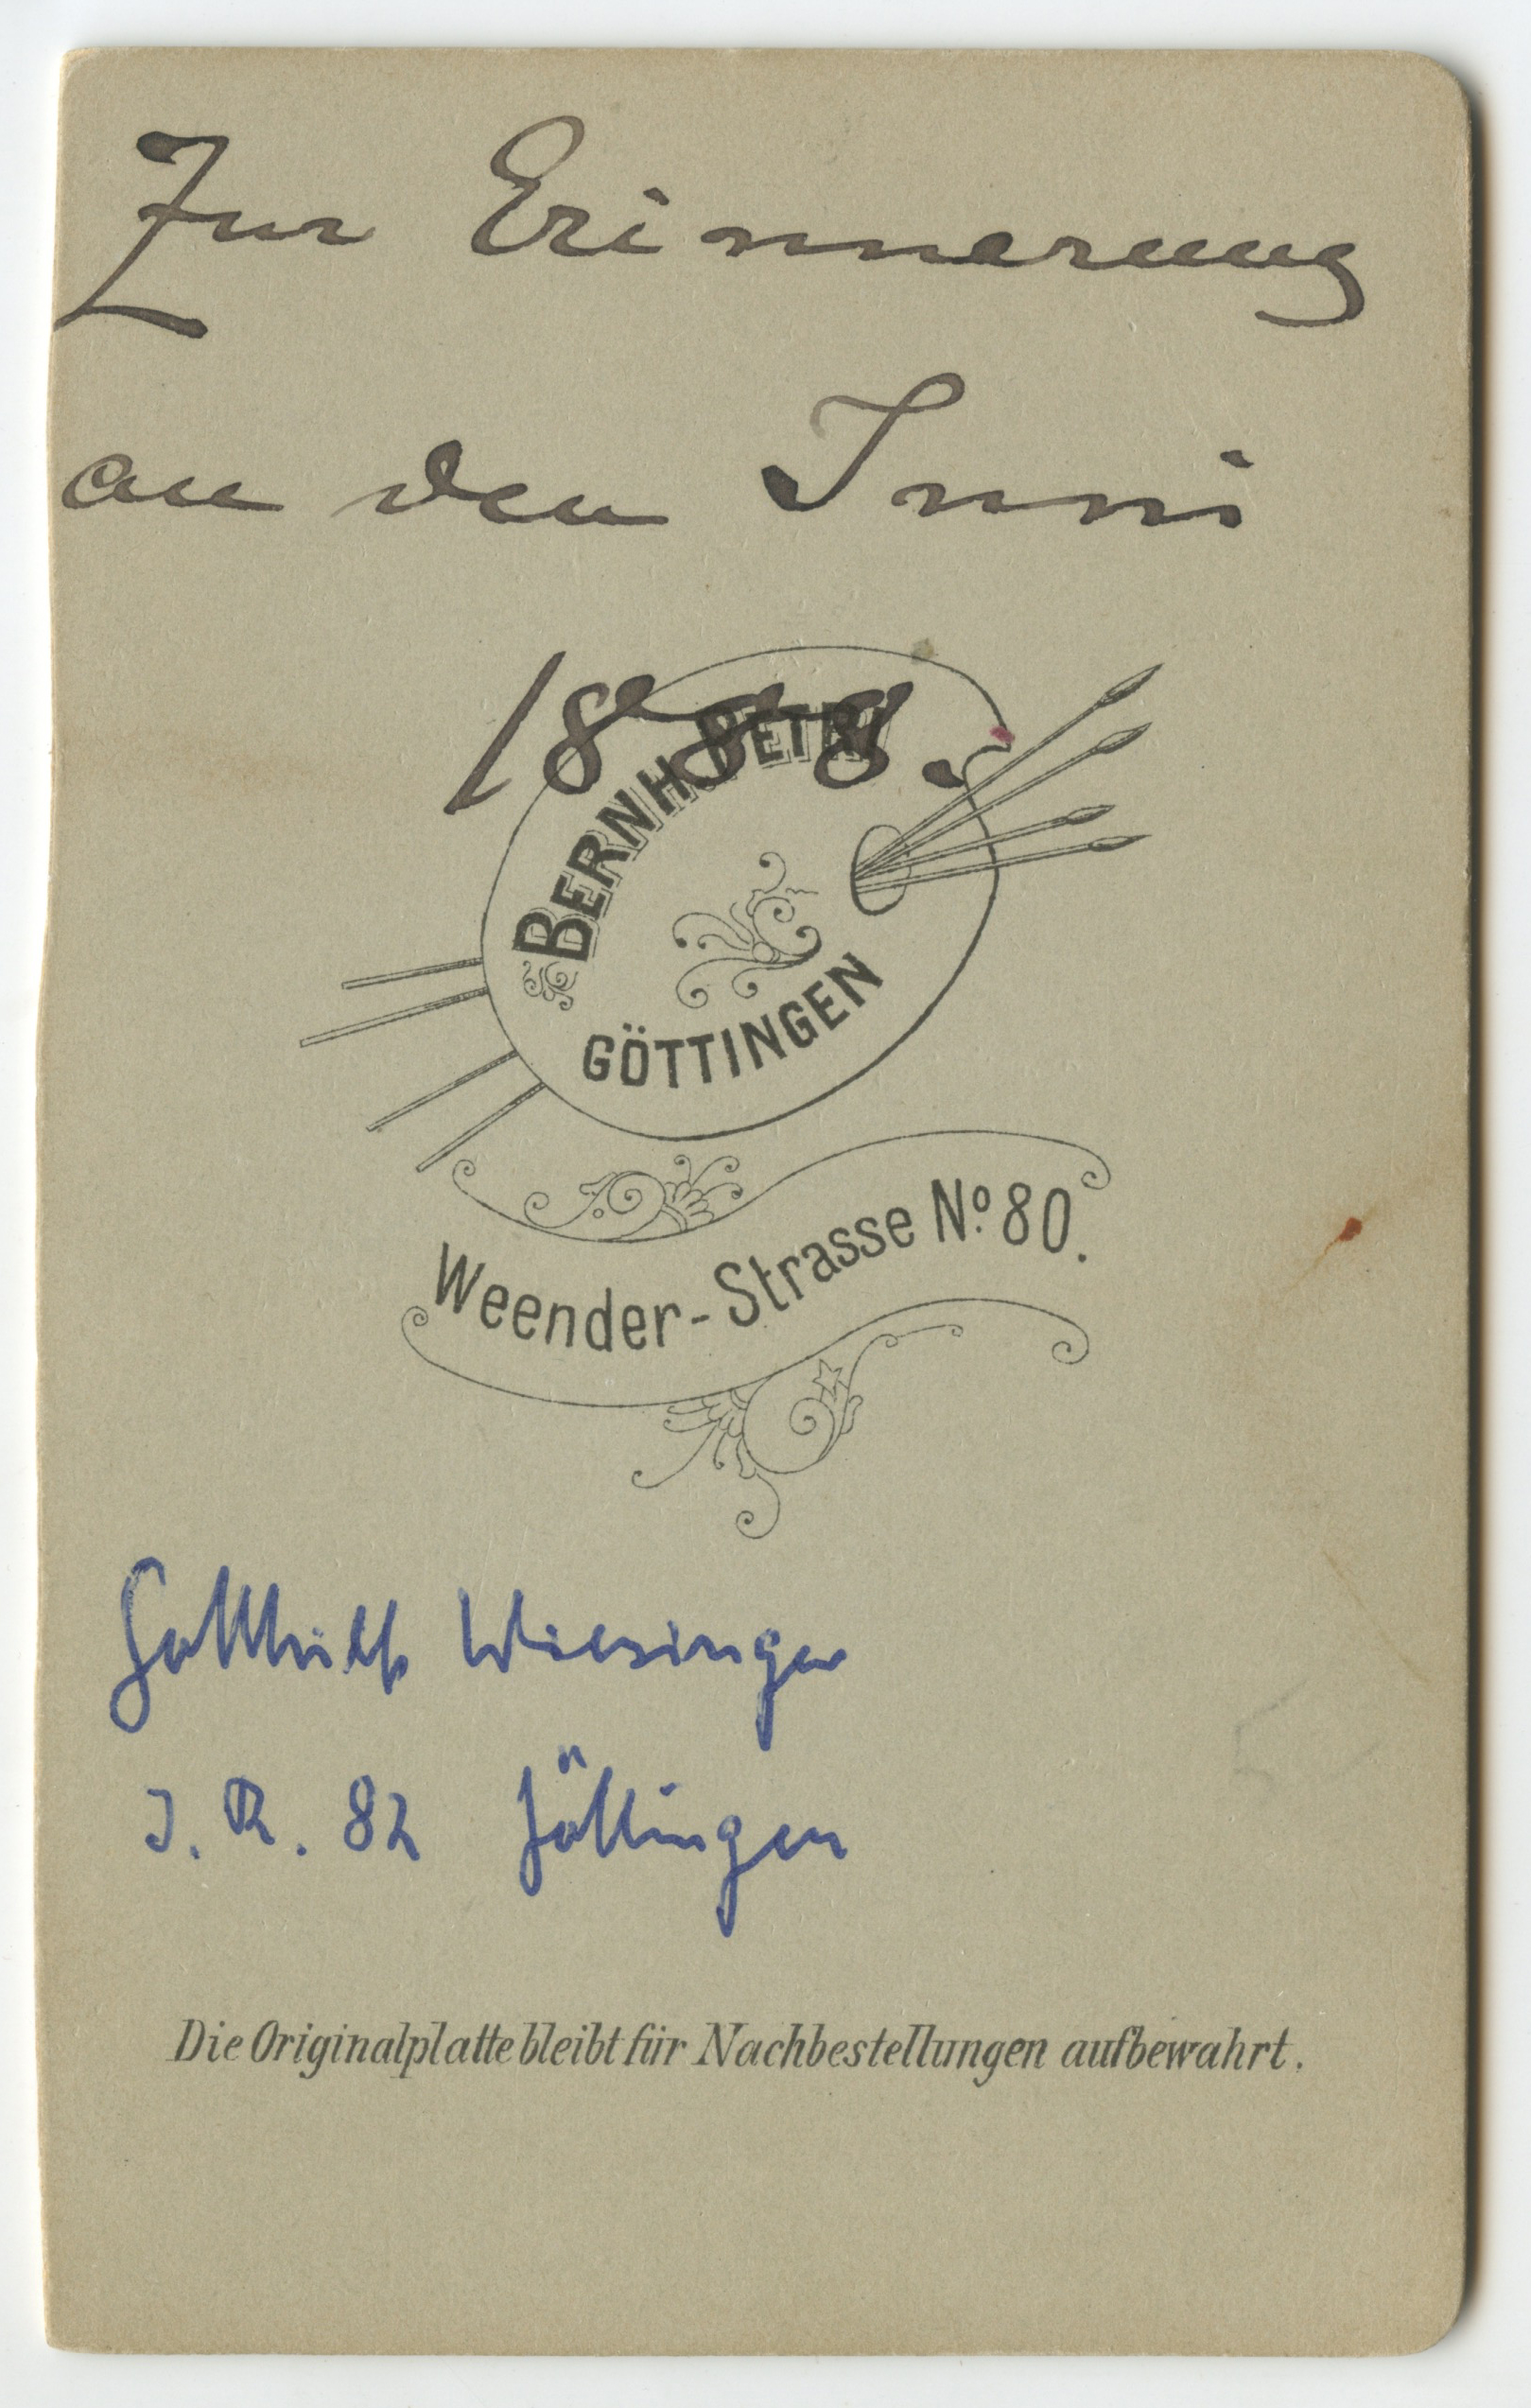 Zur Erinnerung
an den Juni
1888.
BERNH. PETRI
GÖTTINGEN
Weender-Strasse No. 80.
Gotthilf Wiesinger
J. R. 82 Göttingen
Die Originalplatte bleibt für Nachbestellungen aufbewahrt.